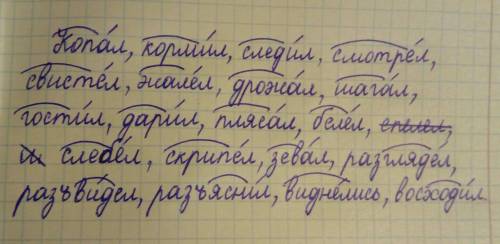 Копа́л, корми́л, следи́л, смотре́л,
свисте́л, жале́л, дрожа́л, шага́л,
гости́л, дари́л, пляса́л, беле́л,
слабе́л, скрипе́л, зева́л, разгляде́л,
разъви́дел, разъясни́л, видне́лись, восходи́л.